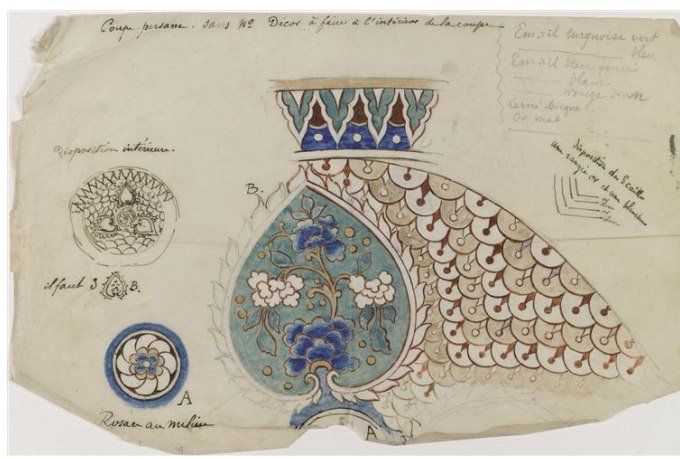 Coupe persane. sans No Décor à faire à l'intérieur de la coupe
Email turquoise vert
bleu
Email bleu foncé
blanc
rouge brun
Cerné brique
Or mat
Disposition intérieure.
Disposition des Ecailles
une rangée or et une blanche
B.
il faut 3 B.
A
Rosace au milieu
A